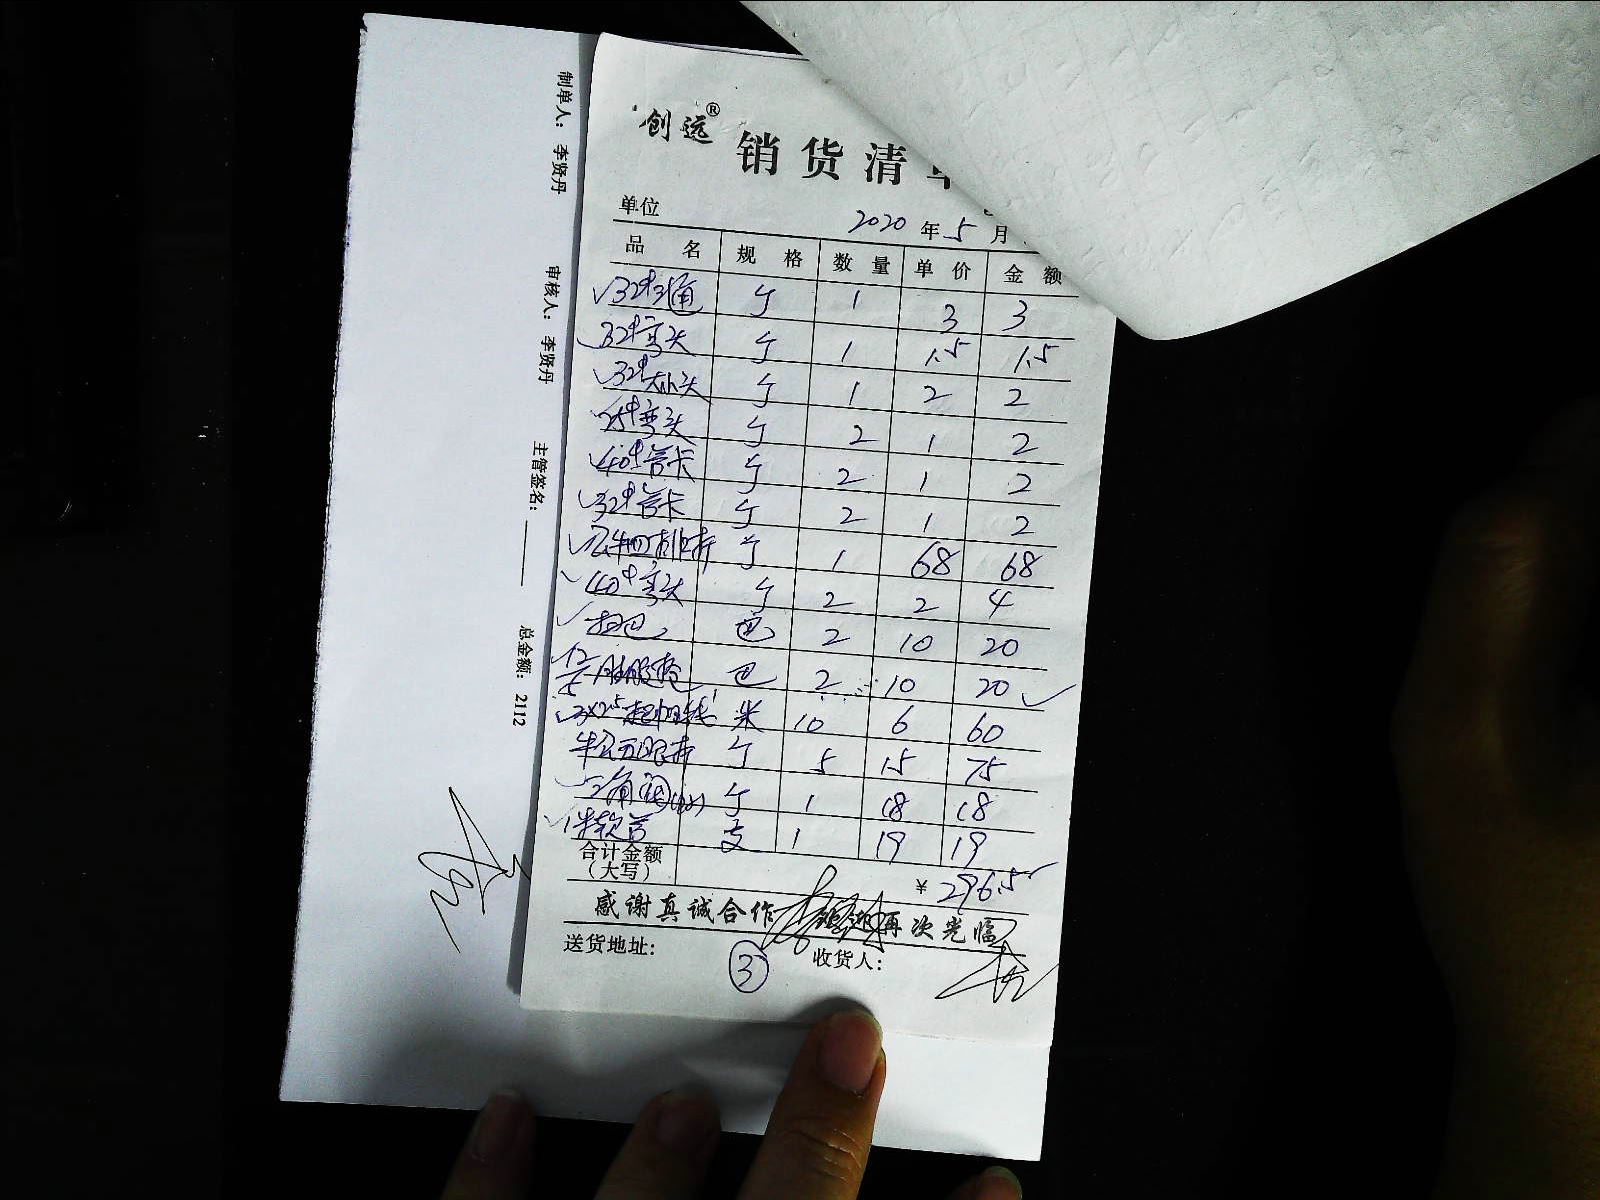 创远®
销货清
单位 2020年5月
品名 规格 数量 单价 金额
32#三通 个 1 3 3
32#弯头 个 1 1.5 1.5
32#大小头 个 1 2 2
25#弯头 个 2 1 2
40#管卡 个 2 1 2
32#管卡 个 2 1 2
公牛四排插 个 1 68 68
40#弯头 个 2 2 4
扫巴 包 2 10 20
包 2 10 20
3×2.5 米 10 6 60
牛公五眼插 个 5 15 75
三角阀 个 1 18 18
1米软管 支 1 19 19
合计金额
(大写) ¥296.5
感谢真诚合作 再次光临
送货地址: ③ 收货人:
制单人: 李贤丹 审核人: 李贤丹 主管签名: 总金额: 2112